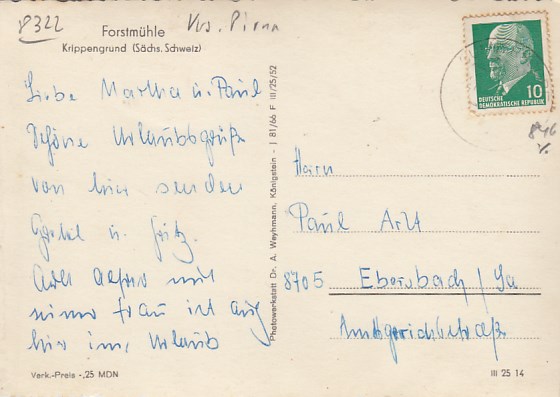 8322 Krs. Pirna
Forstmühle
Krippengrund (Sächs. Schweiz)
Liebe Martha u. Paul
Schöne Urlaubsgrüße
von hier senden
Gretel u. Fritz.
Arlt Alfred mit
seiner Frau ist auch
hier im Urlaub
Verk.-Preis -,25 MDN
Photowerkstatt Dr. A. Weyhmann, Königstein - J 81/66 F III/25/52
10
DEUTSCHE
DEMOKRATISCHE REPUBLIK
846
Herrn
Paul Arlt
8705 Ebersbach / Sa
Amtsgerichtstraße
III 25 14